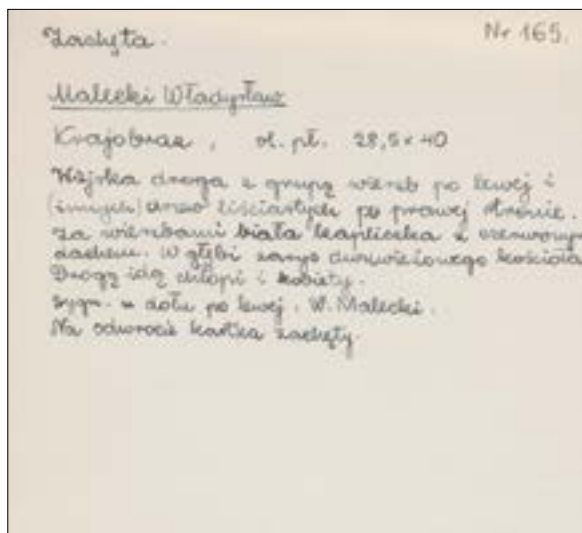 Zachęta. Nr 165.
Malecki Władysław
Krajobraz, ol. pł. 28,5 x 40
Wiejska droga z grupą wierzb po lewej i
(innych) drzew liściastych po prawej stronie.
Za wierzbami biała kapliczka z czerwonym
dachem. W głębi zarys dwuwieżowego kościoła.
Drogą idą chłopi i kobiety.
Sygn. u dołu po lewej. W. Malecki.
Na odwrocie kartka zachęty.